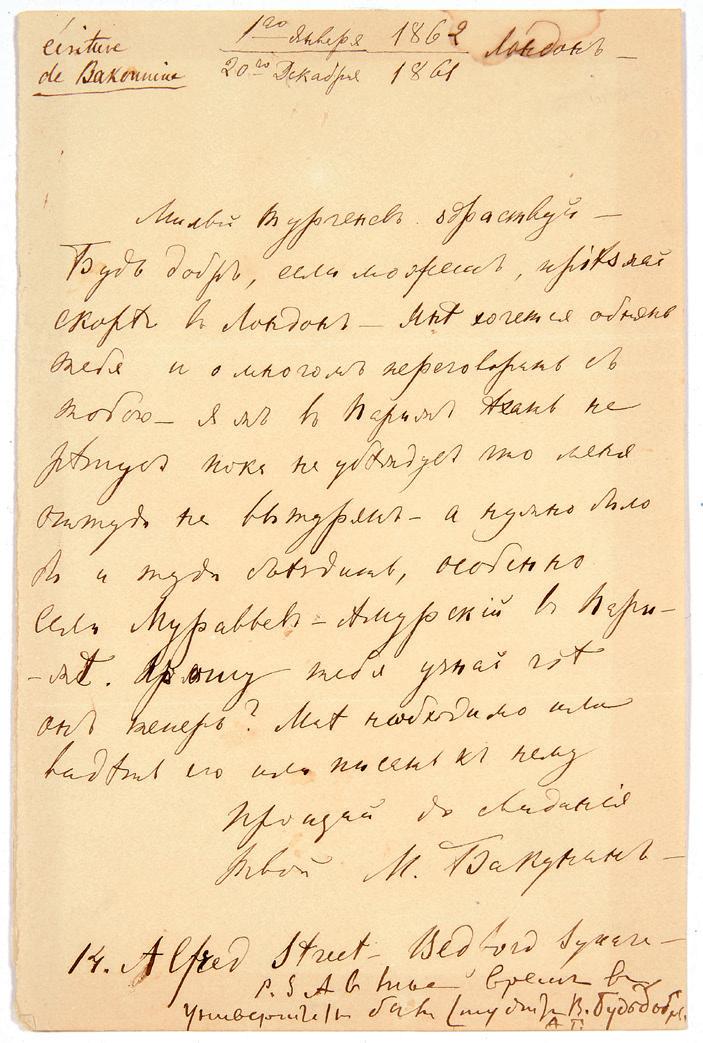 écriture
de Bakounine
1го Января 1862 Лондонъ —
20го Декабря 1861
Милый Тургеневъ здраствуй —
Будь добръ, если можешь, пріѣзжай
скорѣе въ Лондонъ — Мнѣ хочется обнять
тебя и о многомъ переговорить съ
тобою — я въ Парижъ ѣхать не
рѣшусь пока не увѣрюсь что меня
оттуда не вытурятъ — а нужно было
бъ и туда съѣздить, особенно
если Муравьевъ-Амурскій въ Пари-
-жѣ. Прошу тебя узнай гдѣ
онъ теперь? Мнѣ необходимо или
видѣть его или писать къ нему
Прощай до свиданія
Твой М. Бакунинъ —
14. Alfred Street — Bedford Square —
P. S. А въ время въ